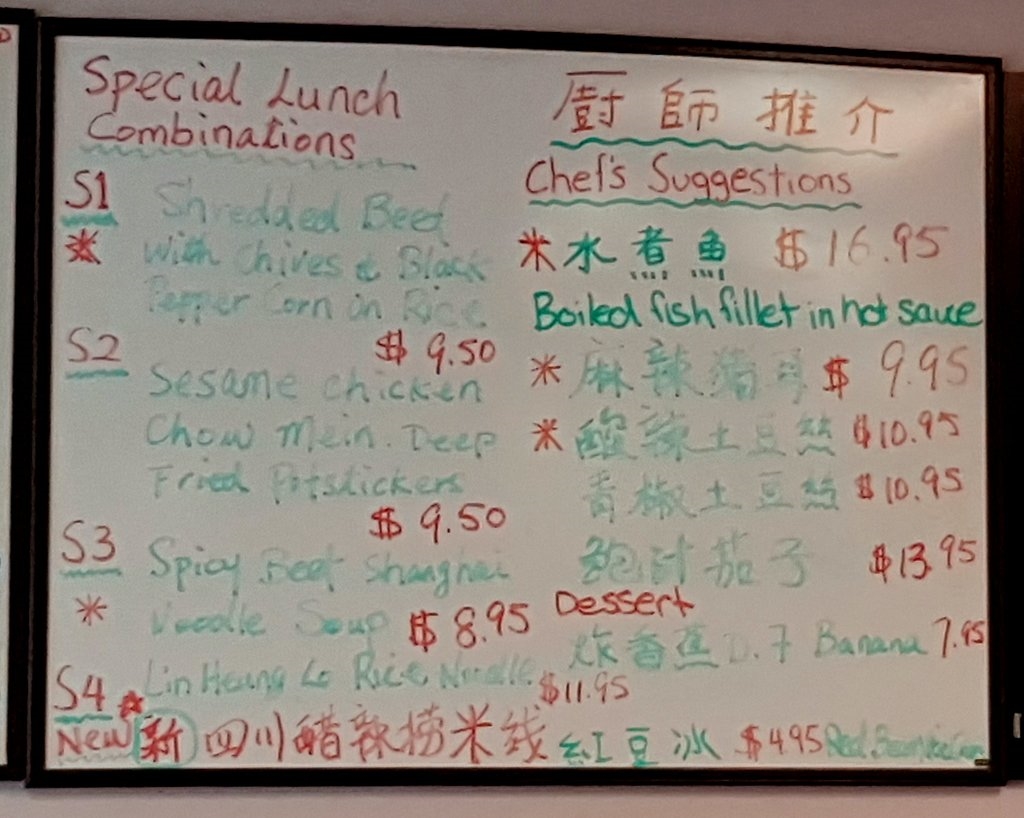 Special Lunch
Combinations
S1 Shredded Beef
With Chives & Black
Pepper Corn on Rice
$ 9.50
S2 Sesame chicken
Chow Mein. Deep
Fried Potstickers
$ 9.50
S3 Spicy Beef Shanghai
Noodle Soup $ 8.95
S4 Lin Heung Lo Rice Noodle $11.95
New 新 四川醋辣捞米线
廚師推介
Chef's Suggestions
水煮鱼 $16.95
Boiled fish fillet in hot sauce
麻辣 $ 9.95
酸辣土豆絲 $10.95
青椒土豆絲 $10.95
鲍汁茄子 $13.95
Dessert
炸香蕉 D.F Banana 7.95
紅豆冰 $4.95 Red Bean